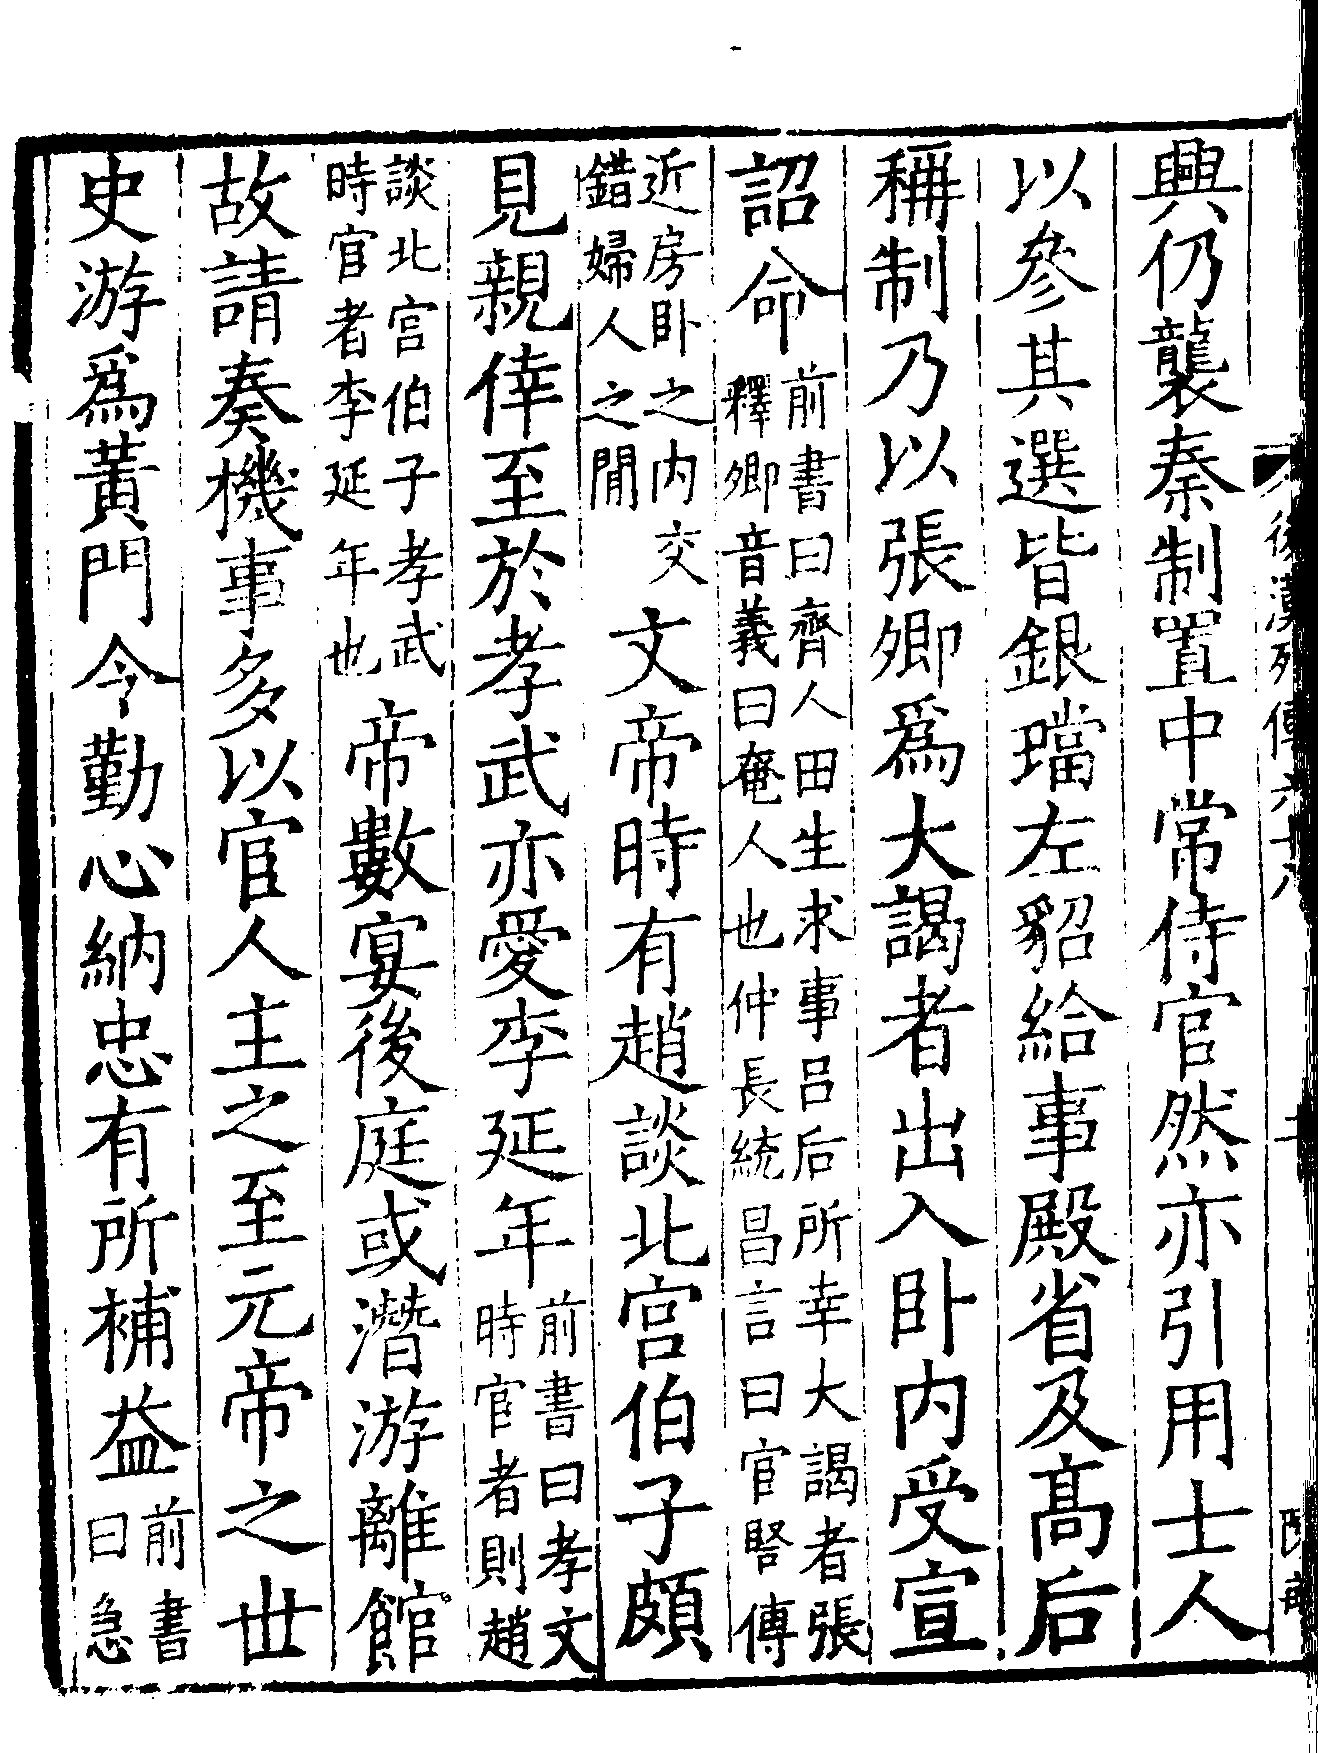 後漢列傳六十八
興仍襲秦制置中常侍官然亦引用士人
以參其選皆銀璫左貂給事殿省及高后
稱制乃以張卿爲大謁者出入卧内受宣
詔命前書曰齊人田生求事吕后所幸大謁者張
釋卿音義曰奄人也仲長統昌言曰宦豎傅
近房卧之内交
錯婦人之閒文帝時有趙談北宫伯子頗
見親倖至於孝武亦愛李延年前書曰孝文
時宦者則趙
談北宫伯子孝武
時宦者李延年也帝數宴後庭或潛游離館
故請奏機事多以宦人主之至元帝之世
史游爲黄門令勤心納忠有所補益前書
曰急